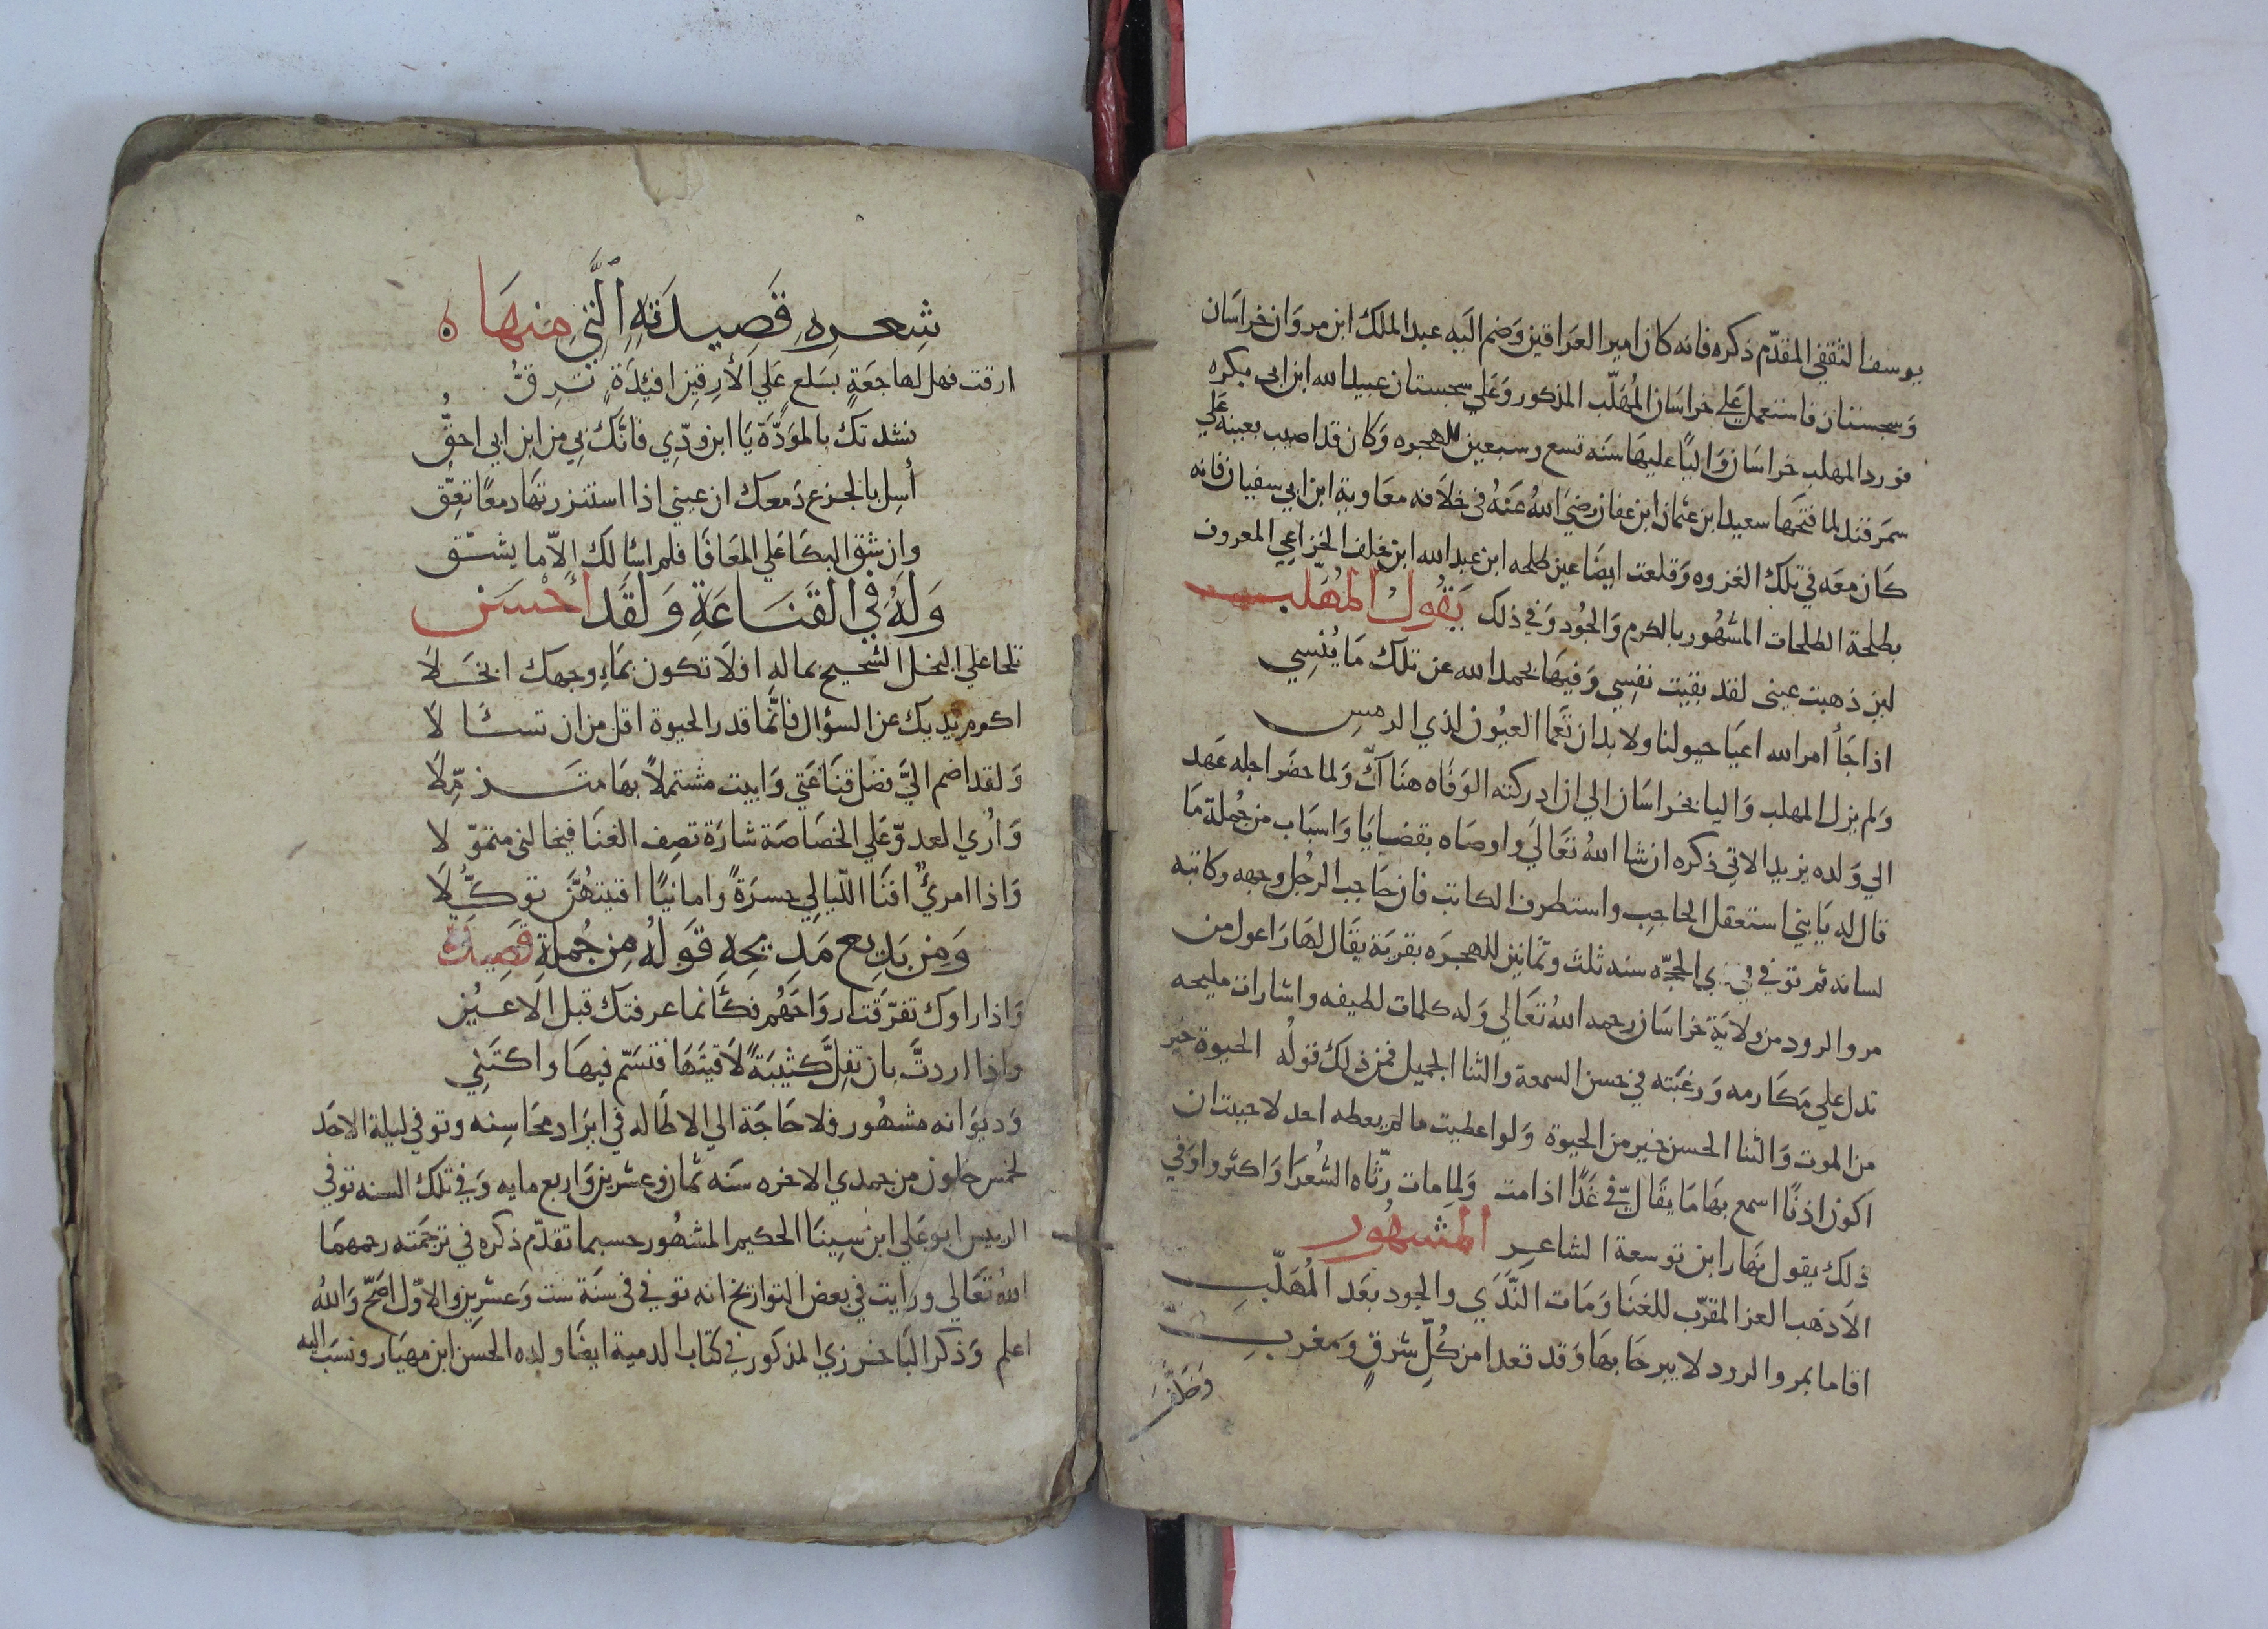 يوسف الثقفي المقدّم ذكره فانه كان امير العراقين وضم اليه عبد الملك ابن مروان خراسان
وسجستان فاستعمل علي خراسان المهلّب المذكور وعلي سجستان عبيد الله ابن ابي بكره
فورد المهلب خراسان واليًا عليها سنه تسع وسبعين للهجره وكان قد اصيب بعينه علي
سمرقند لما فتحها سعيد ابن عثمان ابن عفان رضي الله عنه في خلافه معاوية ابن ابي سفيان فانه
كان معه في تلك الغزوه وقلعت ايضا عين طلحه ابن عبد الله ابن خلف الخزاعي المعروف
بطلحة الطلحات المشهور بالكرم والجود وفي ذلك يقول المهلب
لين ذهبت عيني لقد بقيت نفسي وفيها بحمد الله عن تلك ما ينسي
اذا جأ امر الله اعيا حيولنا ولا بد ان تعما العيون لذي الرمس
ولم يزل المهلب واليا بخراسان الي ان ادركته الوفاه هناك ولما حضر اجله عهد
الي ولده يزيد الاتي ذكره ان شا الله تعالي واوصاه بقضايا واسباب من جملة ما
قال له يا بني استعقل الحاجب واستطرف الكاتب فان حاجب الرجل وجهه وكاتبه
لسانه ثم توفي في ذي الحجّه سنه ثلث وثمانين للهجره بقرية يقال لها راعول من
مرو الرود من ولاية خراسان رحمه الله تعالي وله كلمات لطيفه واشارات مليحه
تدل علي مكارمه ورغبته في حسن السمعة والثنا الجميل فمن ذلك قوله الحيوة خير
من الموت والثنا الحسن خير من الحيوة ولو اعطيت ما لم يعطه احد لاحببت ان
اكون اذنًا اسمع بها ما يقال فيّ غدًا اذا مت ولما مات رثّاه الشعرا واكثروا وفي
ذلك يقول نهار ابن توسعة الشاعر المشهور
الا ذهب العز المقرّب للغنا ومات الندي والجود بعد المهلّب
اقاما بمرو الرود لا يبرحا بها وقد قعدا من كلّ شرقٍ ومغرب
وخلّف
شعره قصيدته الّتي منها ه
ارقت فهل لهاجعةٍ بسلع علي الأرقين افئدةٍ ترقّ
نشدتك بالمودّة يا ابن ودّي فانّك بي من ابن ابي احقّ
أسل بالجزع دمعك ان عيني اذا استنزرتها دمعًا تعقّ
وان شق البكا علي المعافا فلم اسالك الاّ ما يشقّ
وله في القناعة ولقد أحسن
تلحا علي البخل الشحيح بماله افلا تكون بماء وجهك ابخلا
اكرم يديك عن السؤال فانّما قدر الحيوة اقل من ان تسألا
ولقد اضم اليّ فضل قناعتي وابيت مشتملاً بها متزمّلا
واري العدوّ علي الخصاصة شارة تصف الغنا فيخالني متموّلا
واذا امرئٌ افنا اللّيالي حسرةً وامانيًا افنيتهنّ توكّلا
ومن بديع مديحه قوله من جملة قصيدة
واذا راوك تفرّقت ارواحهم فكأنما عرفتك قبل الاعين
واذا اردتَّ بان تفلّ كثيبةً لاقيتها فتسمّ فيها واكتني
وديوانه مشهور فلا حاجة الي الاطاله في ايراد محاسنه وتوفي ليلة الاحد
لخمس خلون من جمدي الاخره سنه ثمان وعشرين واربع مايه وفي تلك السنه توفي
الرييس ابو علي ابن سينا الحكيم المشهور حسبما تقدّم ذكره في ترجمته رحمهما
الله تعالي ورايت في بعض التواريخ انه توفي في سنة ست وعشرين والاوّل اصحّ والله
اعلم وذكر الباخرزي المذكور في كتاب الدمية ايضًا ولده الحسن ابن مهيار ونسب اليه